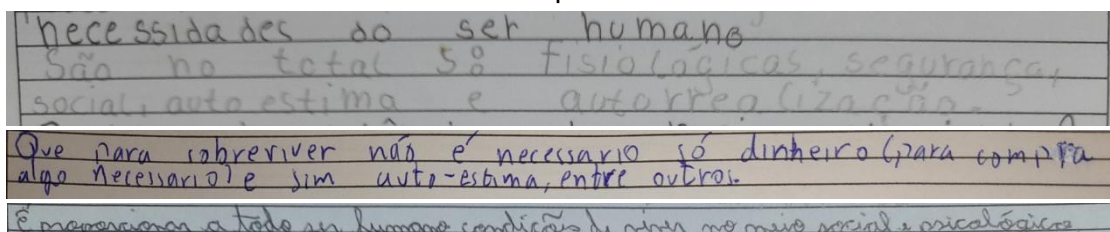 necessidades do ser humano
São no total 5: fisiológicas, segurança,
social, auto estima e autorrealização.
Que para sobreviver não é necessario só dinheiro (para compra
algo necessario) e sim auto-estima, entre outros.
a todo ser humano condições de viver no meio social e psicológico